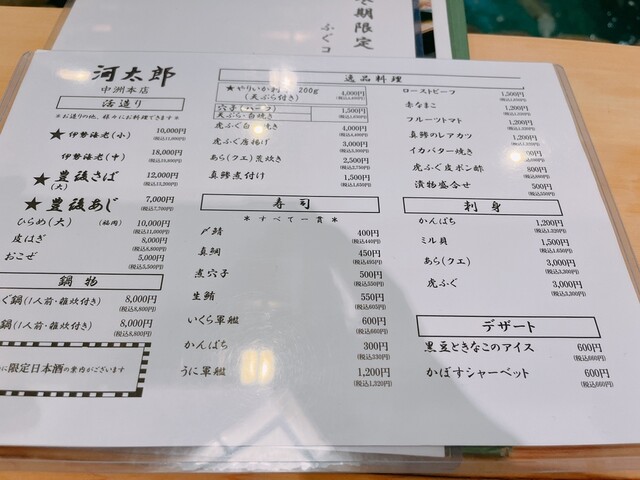 期限定
ふぐコ
河太郎
中洲本店
活造り
★伊勢海老(小) 10,000円
(税込11,000円)
伊勢海老(中) 18,000円
★豊後さば(大) 12,000円
(税込13,200円)
★豊後あじ 7,000円
(税込7,700円)
ひらめ(大) (福岡) 10,000円
(税込11,000円)
皮はぎ 8,000円
(税込8,800円)
おこぜ 5,000円
(税込5,500円)
鍋物
ぐ鍋(1人前・雑炊付き) 8,000円
(税込8,800円)
鍋(1人前・雑炊付き) 8,000円
(税込8,800円)
に限定日本酒の案内がございます
逸品料理
★やりいか 200g 4,000円
(天ぷら付き) (税込4,400円)
穴子(ハーフ) 1,500円
天ぷら・白焼き
虎ふぐ白 焼き 4,000円
(税込4,400円)
虎ふぐ唐揚げ 3,000円
あら(クエ)荒炊き 2,500円
(税込2,750円)
真鯵煮付け 1,500円
(税込1,650円)
寿司
*すべて一貫*
〆鯖 400円
(税込440円)
真鯛 450円
(税込495円)
煮穴子 500円
(税込550円)
生鮪 550円
(税込605円)
いくら軍艦 600円
(税込660円)
かんぱち 300円
(税込330円)
うに軍艦 1,200円
(税込1,320円)
ローストビーフ 1,500円
赤なまこ 1,200円
フルーツトマト 1,200円
真鯵のレアカツ 1,200円
イカバター焼き
虎ふぐ皮ポン酢 800円
漬物盛合せ 500円
刺身
かんぱち 1,200円
(税込1,320円)
ミル貝 1,500円
(税込1,650円)
あら(クエ) 3,000円
(税込3,300円)
虎ふぐ 3,000円
(税込3,300円)
デザート
黒豆ときなこのアイス 600円
(税込660円)
かぼすシャーベット 600円
(税込660円)